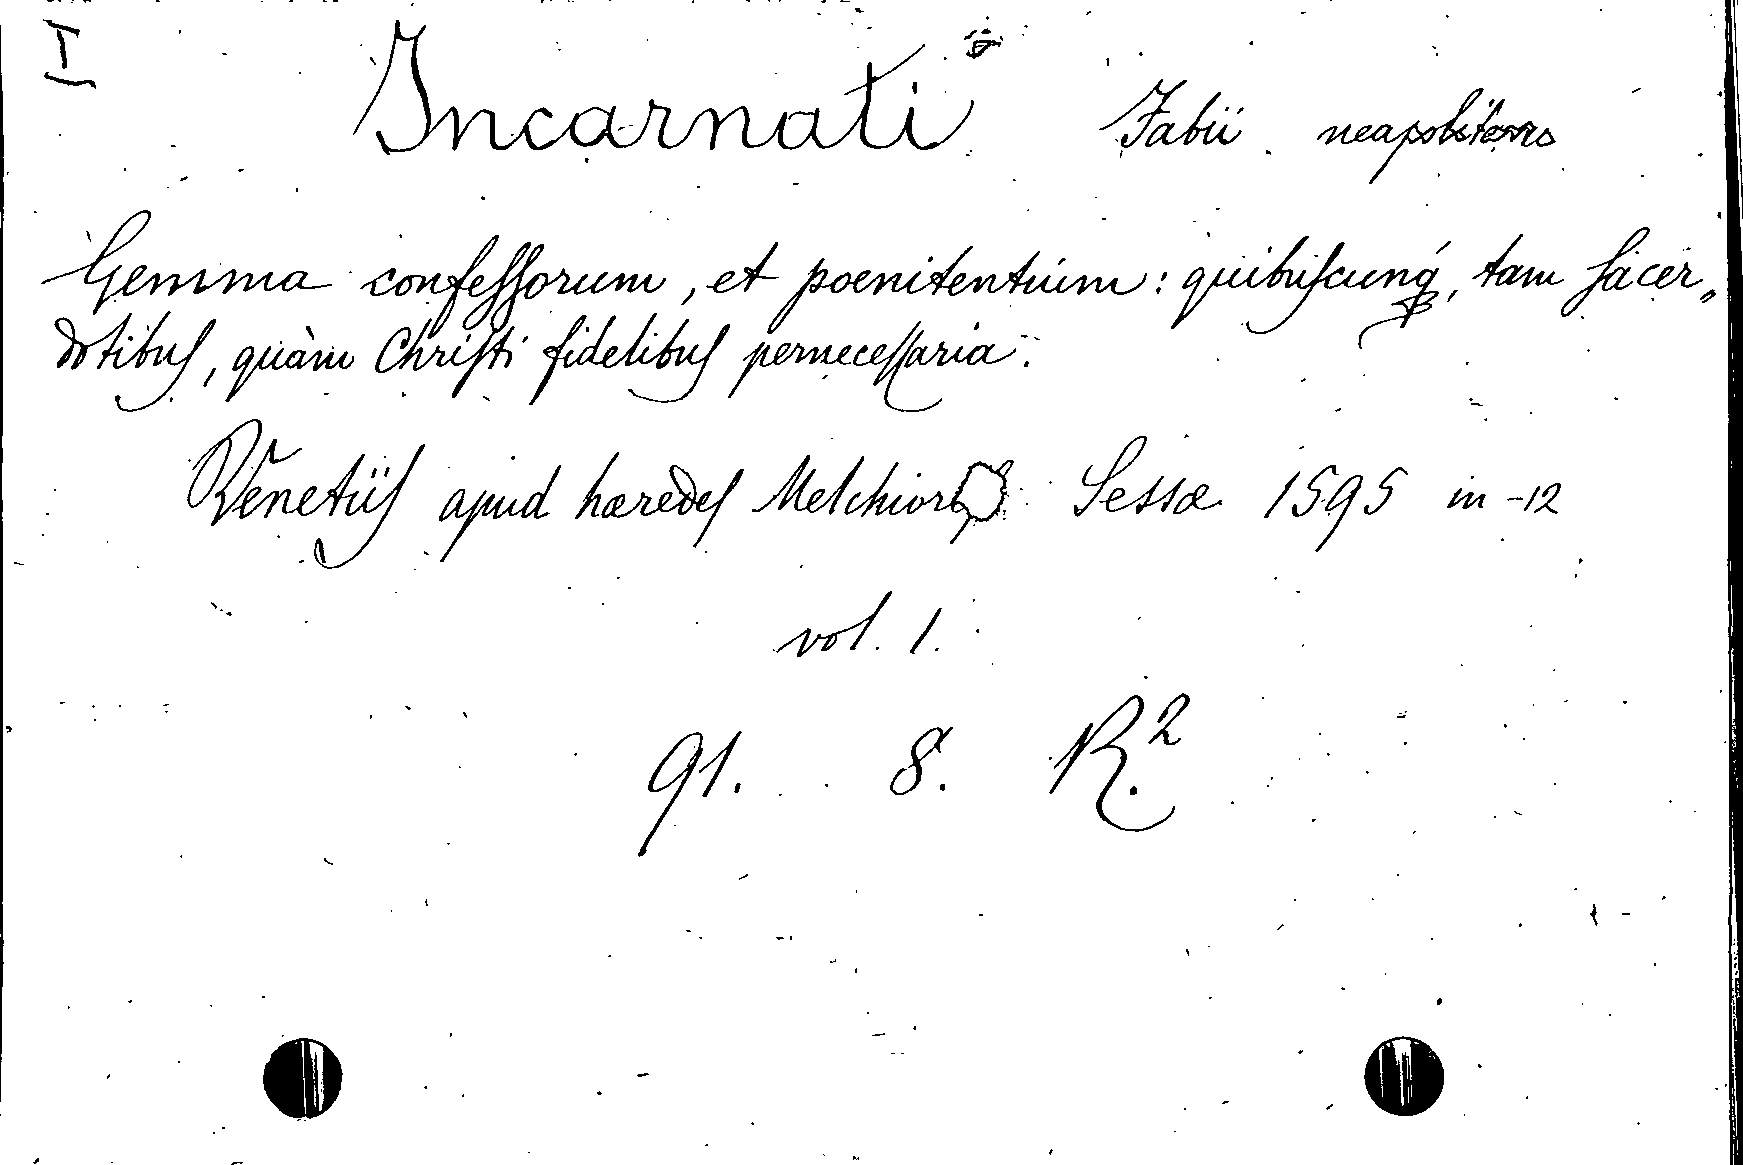 I
Incarnati Fabii neapolitano
Gemma confeſſorum, et poenitentium: quibuſcunq́, tam ſacer„
dotibuſ, quàm Chriſti fidelibuſ perneceſſaria.
Venetiiſ apud hæredeſ Melchioriſ Sessæ 1595 in-12
vol. 1.
91. 8. R.2